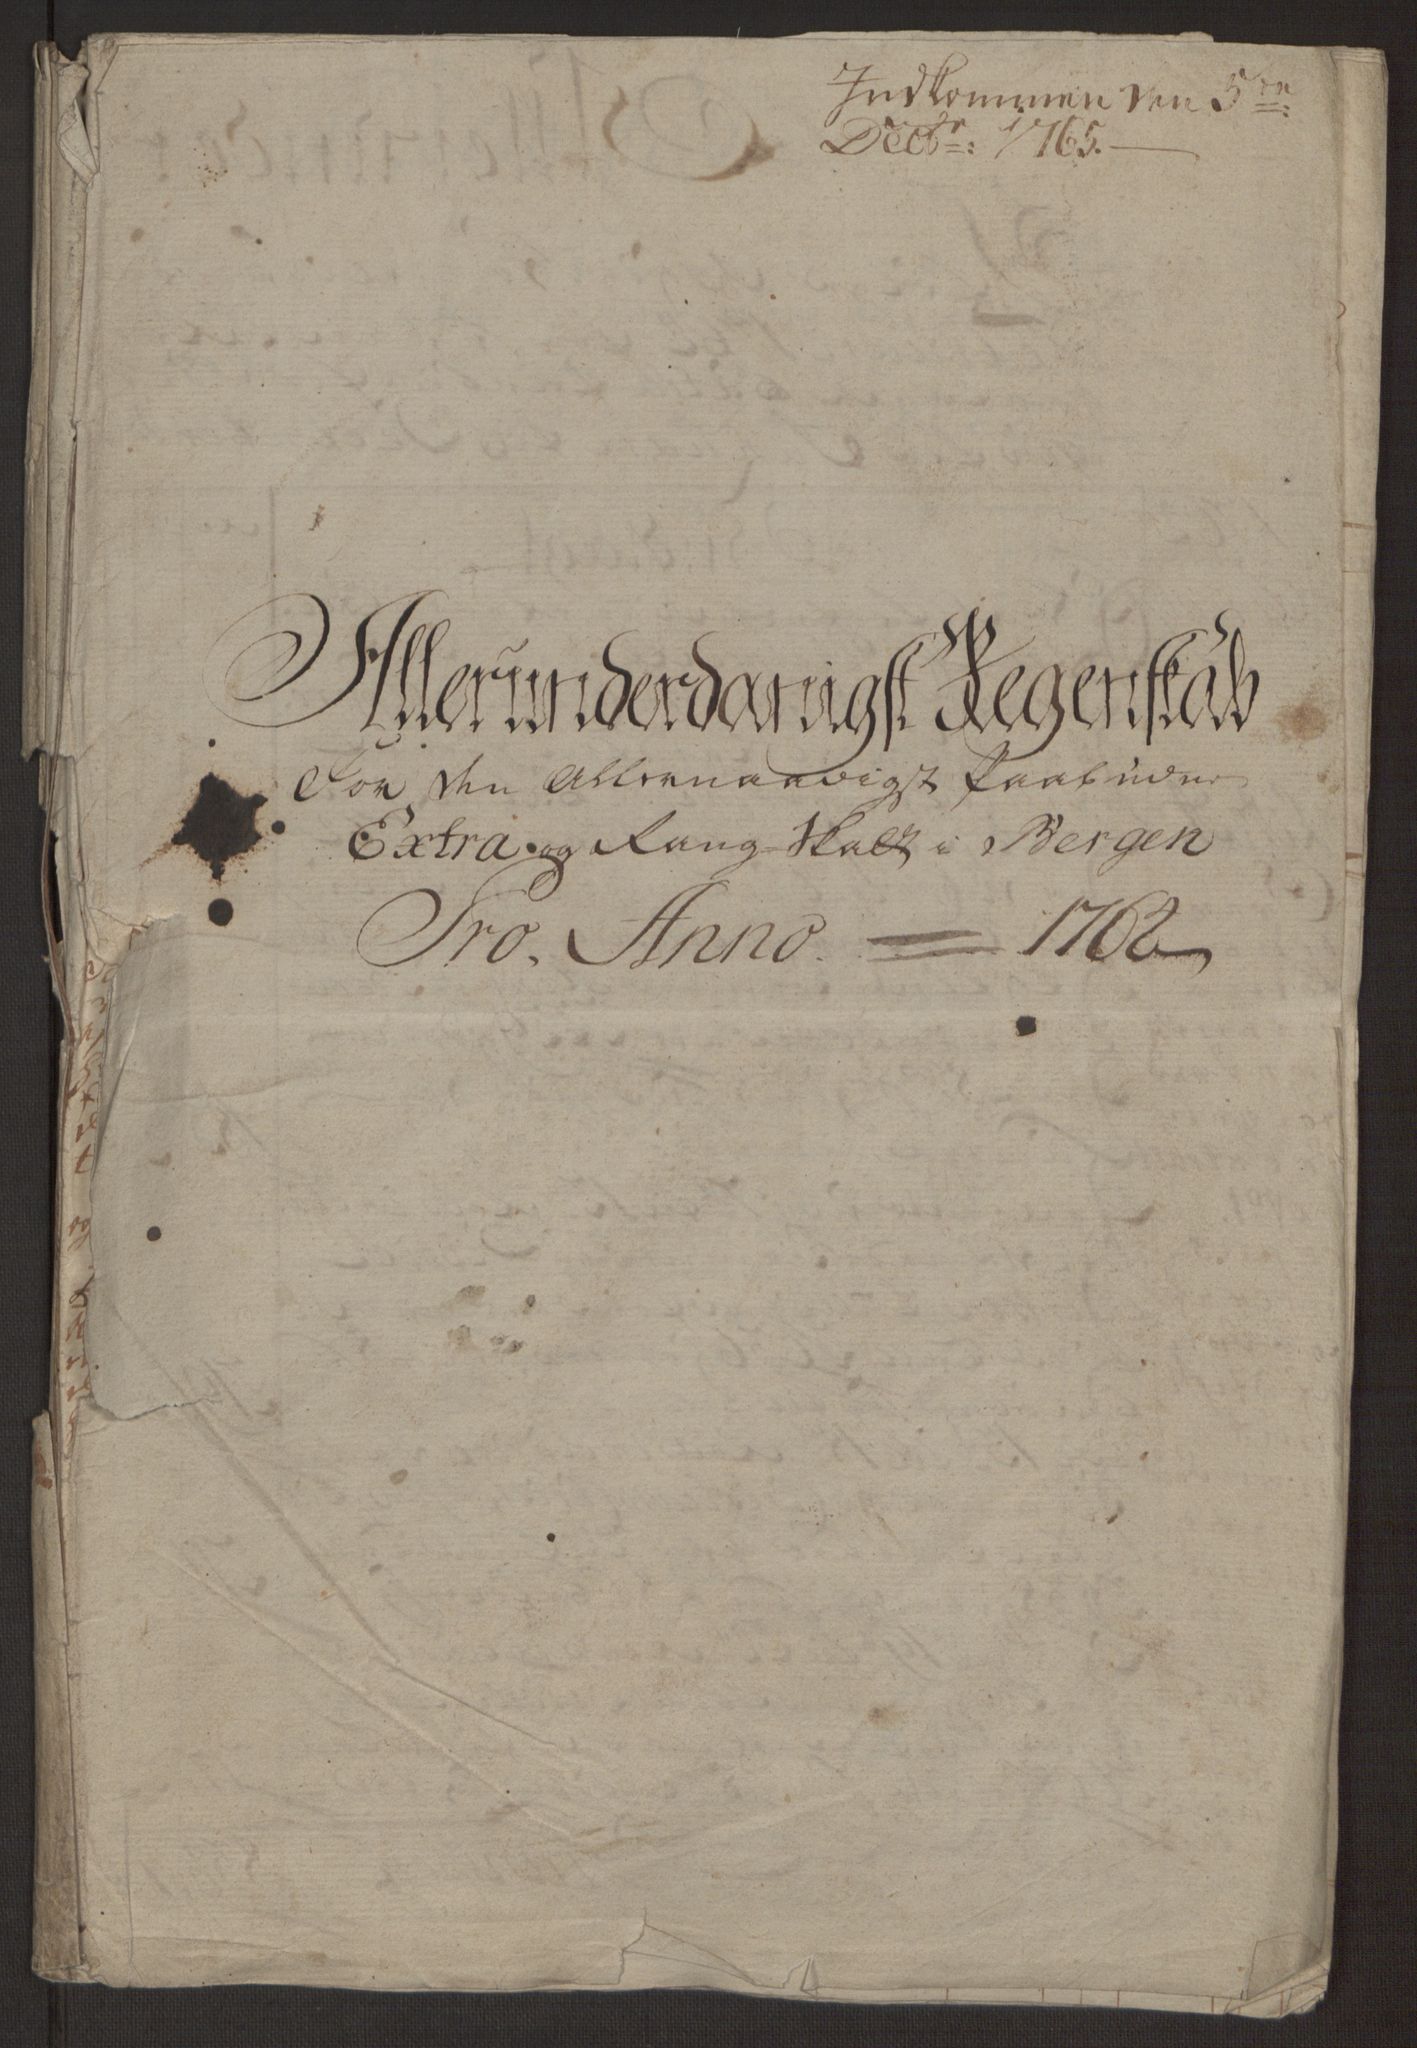 Indkommen den 5te
Decbr: 1765.
Allerunderdanigst Regenskab
For den Allernaadigst Paabudne
Extra og Rang Skatt i Bergen
Pro. Anno. 1762